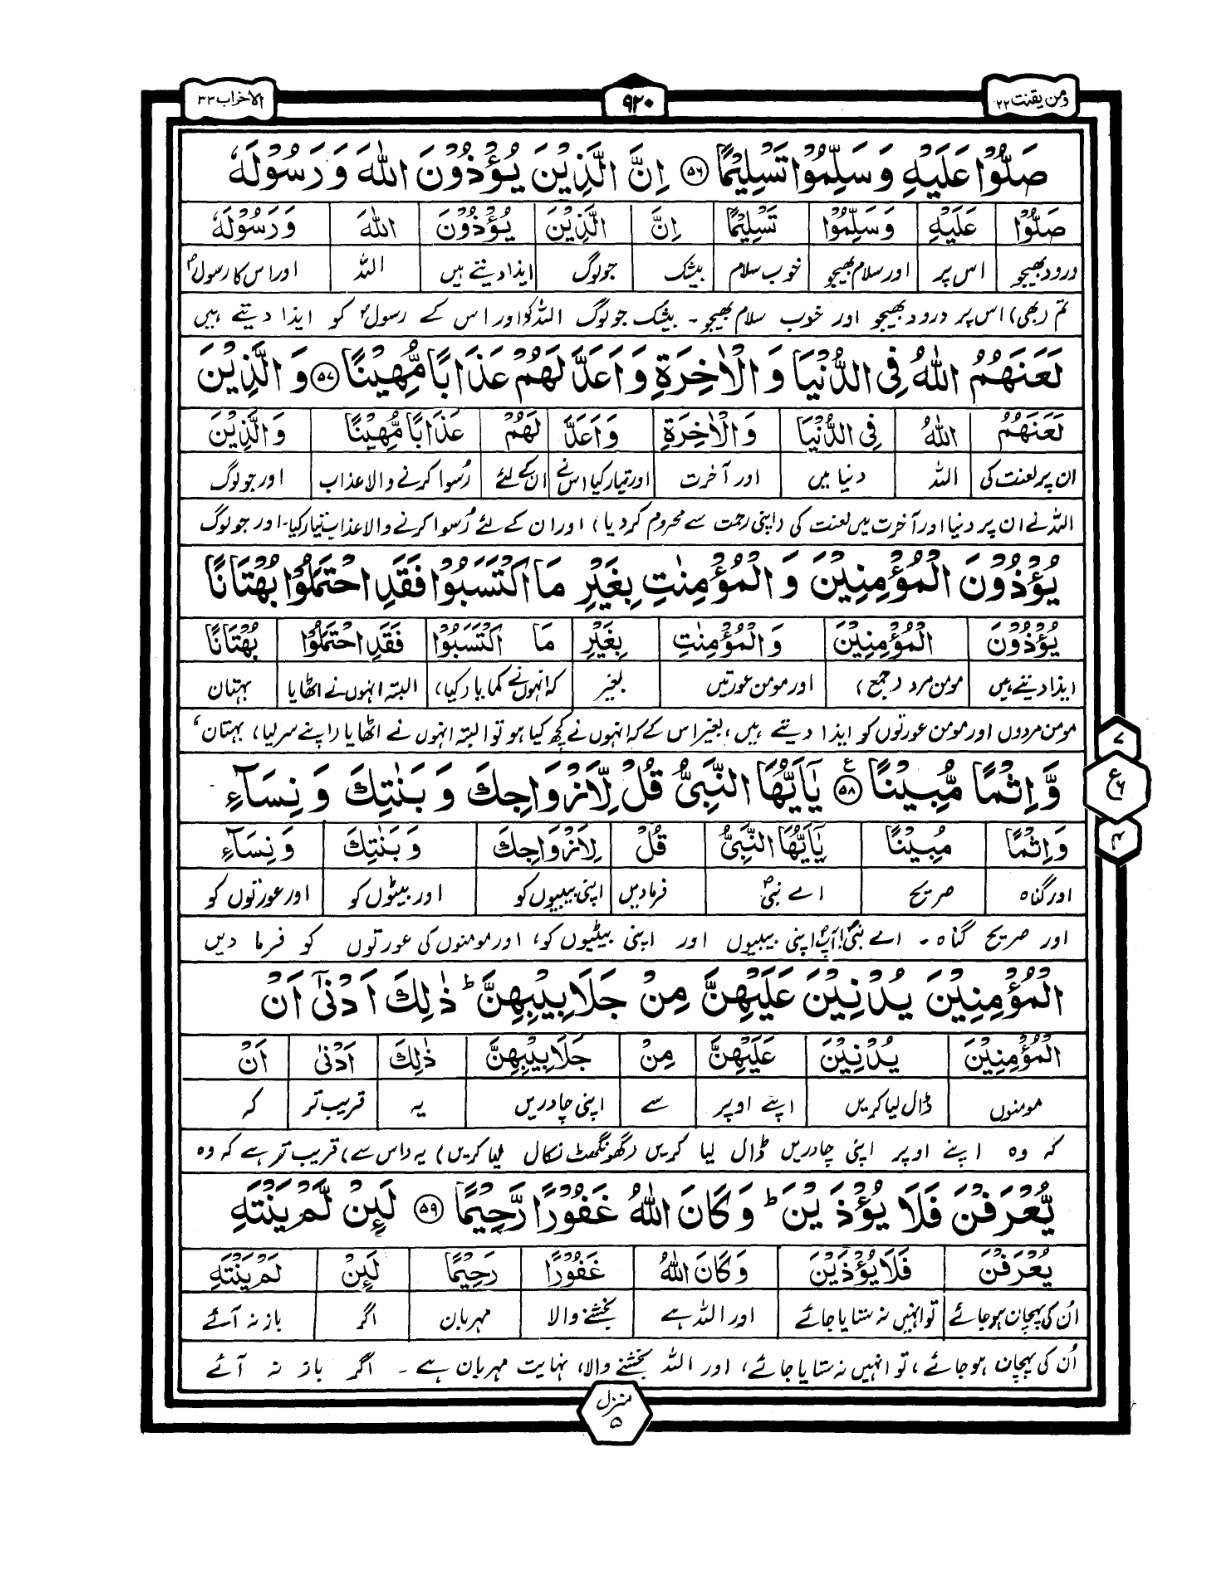 الاحزاب ۳۳
۹۲۰
ومن یقنت ۲۲
صَلُّوْا عَلَیْهِ وَ سَلِّمُوْا تَسْلِیْمًا ۵۶ اِنَّ الَّذِیْنَ یُؤْذُوْنَ اللّٰهَ وَ رَسُوْلَهٗ
صَلُّوْا عَلَیْهِ وَسَلِّمُوْا تَسْلِیْمًا اِنَّ الَّذِیْنَ یُؤْذُوْنَ اللّٰهَ وَرَسُوْلَهٗ
درود بھیجو اس پر اور سلام بھیجو خوب سلام بیشک جو لوگ ایذا دیتے ہیں اللہ اور اس کا رسولؐ
تم (بھی) اس پر درود بھیجو اور خوب سلام بھیجو ۔ بیشک جو لوگ اللہ کو اور اس کے رسولؐ کو ایذا دیتے ہیں
لَعَنَهُمُ اللّٰهُ فِی الدُّنْیَا وَ الْاٰخِرَةِ وَ اَعَدَّ لَهُمْ عَذَابًا مُّهِیْنًا ۵۷ وَ الَّذِیْنَ
لَعَنَهُمُ اللّٰهُ فِی الدُّنْیَا وَ الْاٰخِرَةِ وَ اَعَدَّ لَهُمْ عَذَابًا مُّهِیْنًا وَ الَّذِیْنَ
ان پر لعنت کی اللہ دنیا میں اور آخرت اور تیار کیا اس نے ان کے لئے رُسوا کرنے والا عذاب اور جو لوگ
اللہ نے ان پر دنیا اور آخرت میں لعنت کی (اپنی رحمت سے محروم کر دیا) اور ان کے لئے رُسوا کرنے والا عذاب تیار کیا۔ اور جو لوگ
یُؤْذُوْنَ الْمُؤْمِنِیْنَ وَ الْمُؤْمِنٰتِ بِغَیْرِ مَا اكْتَسَبُوْا فَقَدِ احْتَمَلُوْا بُهْتَانًا
یُؤْذُوْنَ الْمُؤْمِنِیْنَ وَ الْمُؤْمِنٰتِ بِغَیْرِ مَا اكْتَسَبُوْا فَقَدِ احْتَمَلُوْا بُهْتَانًا
ایذا دیتے ہیں مومن مرد (جمع) اور مومن عورتیں بغیر کہ انہوں نے کمایا (کیا) البتہ انہوں نے اٹھایا بہتان
مومن مردوں اور مومن عورتوں کو ایذا دیتے ہیں، بغیر اس کے کہ انہوں نے کچھ کیا ہو تو البتہ انہوں نے اٹھایا (اپنے سر لیا) بہتان ،
وَّ اِثْمًا مُّبِیْنًا ۵۸ یٰۤاَیُّهَا النَّبِیُّ قُلْ لِّاَزْوَاجِكَ وَ بَنٰتِكَ وَ نِسَآءِ
وَ اِثْمًا مُبِیْنًا یٰۤاَیُّهَا النَّبِیُّ قُلْ لِاَزْوَاجِكَ وَ بَنٰتِكَ وَ نِسَآءِ
اور گناہ صریح اے نبیؐ فرمادیں اپنی بیبیوں کو اور بیٹوں کو اور عورتوں کو
اور صریح گناہ ۔ اے نبیؐ! آپؐ اپنی بیبیوں اور اپنی بیٹیوں کو، اور مومنوں کی عورتوں کو فرما دیں
۷
ع ۶
۴
الْمُؤْمِنِیْنَ یُدْنِیْنَ عَلَیْهِنَّ مِنْ جَلَابِیْبِهِنَّ ط ذٰلِكَ اَدْنٰۤی اَنْ
الْمُؤْمِنِیْنَ یُدْنِیْنَ عَلَیْهِنَّ مِنْ جَلَابِیْبِهِنَّ ذٰلِكَ اَدْنٰی اَنْ
مومنوں ڈال لیا کریں اپنے اوپر سے اپنی چادریں یہ قریب تر کہ
کہ وہ اپنے اوپر اپنی چادریں ڈال لیا کریں (گھونگھٹ نکال لیا کریں) یہ (اس سے) قریب تر ہے کہ وہ
یُّعْرَفْنَ فَلَا یُؤْذَیْنَ ط وَ كَانَ اللّٰهُ غَفُوْرًا رَّحِیْمًا ۵۹ لَىِٕنْ لَّمْ یَنْتَهِ
یُعْرَفْنَ فَلَا یُؤْذَیْنَ وَ كَانَ اللّٰهُ غَفُوْرًا رَحِیْمًا لَىِٕنْ لَمْ یَنْتَهِ
اُن کی پہچان ہو جائے تو انہیں نہ ستایا جائے اور اللہ ہے بخشنے والا مہربان اگر باز نہ آئے
اُن کی پہچان ہو جائے ، تو انہیں نہ ستایا جائے، اور اللہ بخشنے والا، نہایت مہربان ہے ۔ اگر باز نہ آئے
منزل ۵